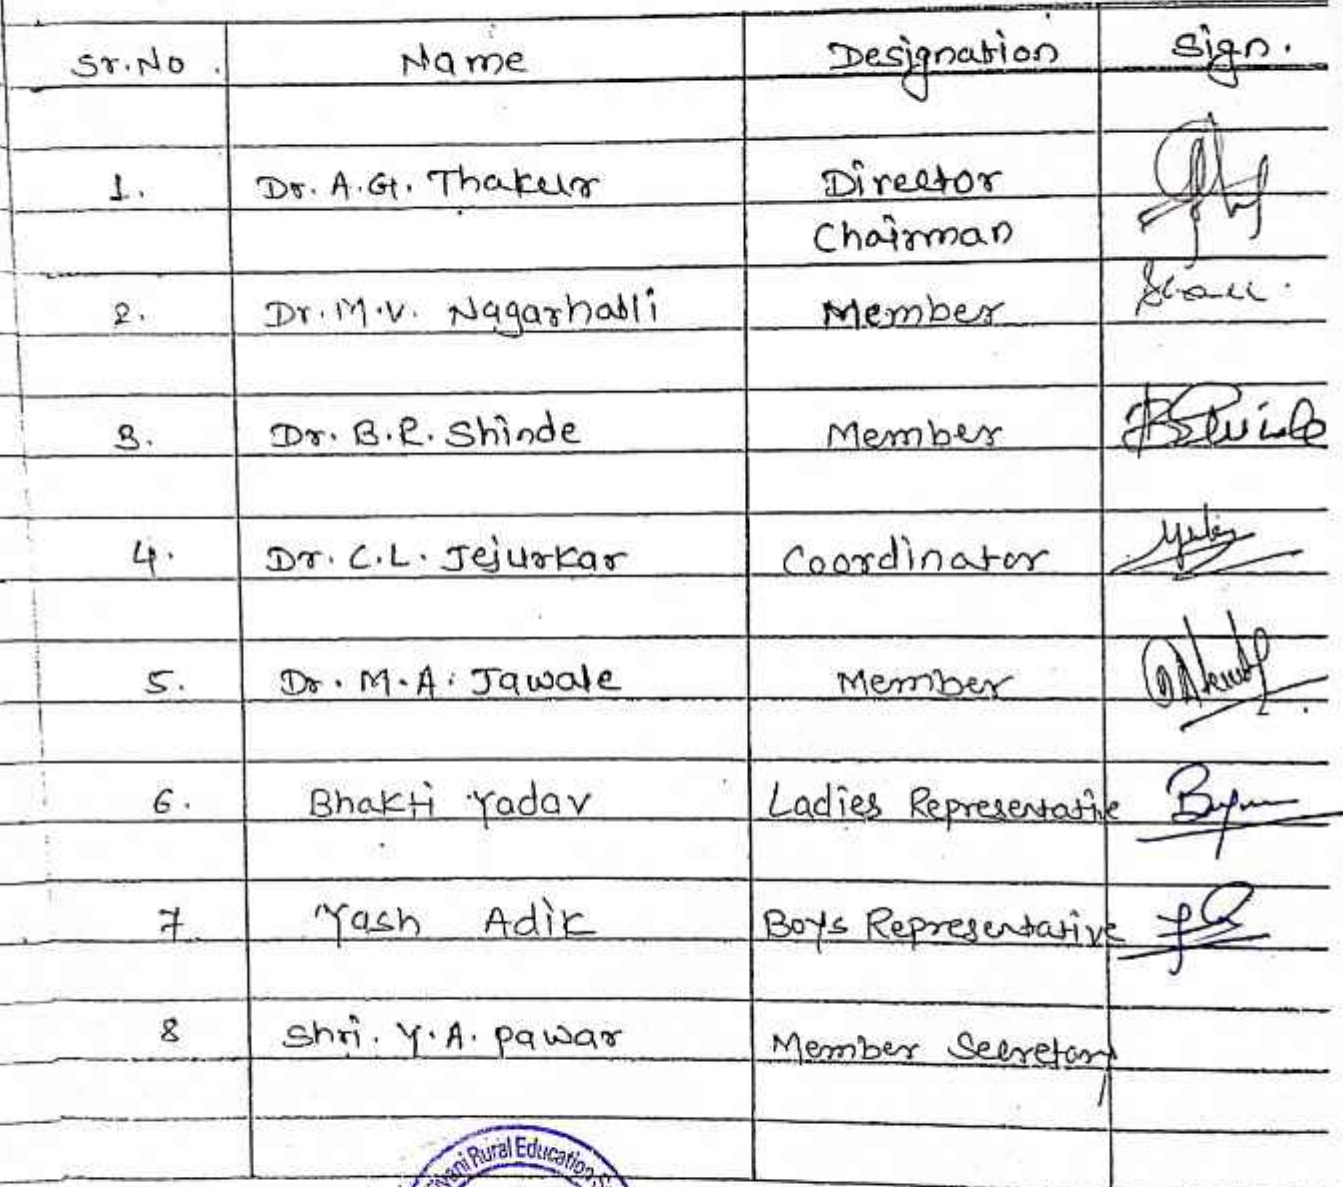 Sr.No. Name Designation Sign.
1. Dr. A.G. Thakur Director
Chairman
2. Dr. M.V. Nagarhalli Member
3. Dr. B.R. Shinde Member BShinde
4. Dr. C.L. Jejurkar Coordinator
5. Dr. M.A. Jawale Member
6. Bhakti Yadav Ladies Representative
7. Yash Adik Boys Representative
8 Shri. Y.A. Pawar Member Secretary
Rural Education